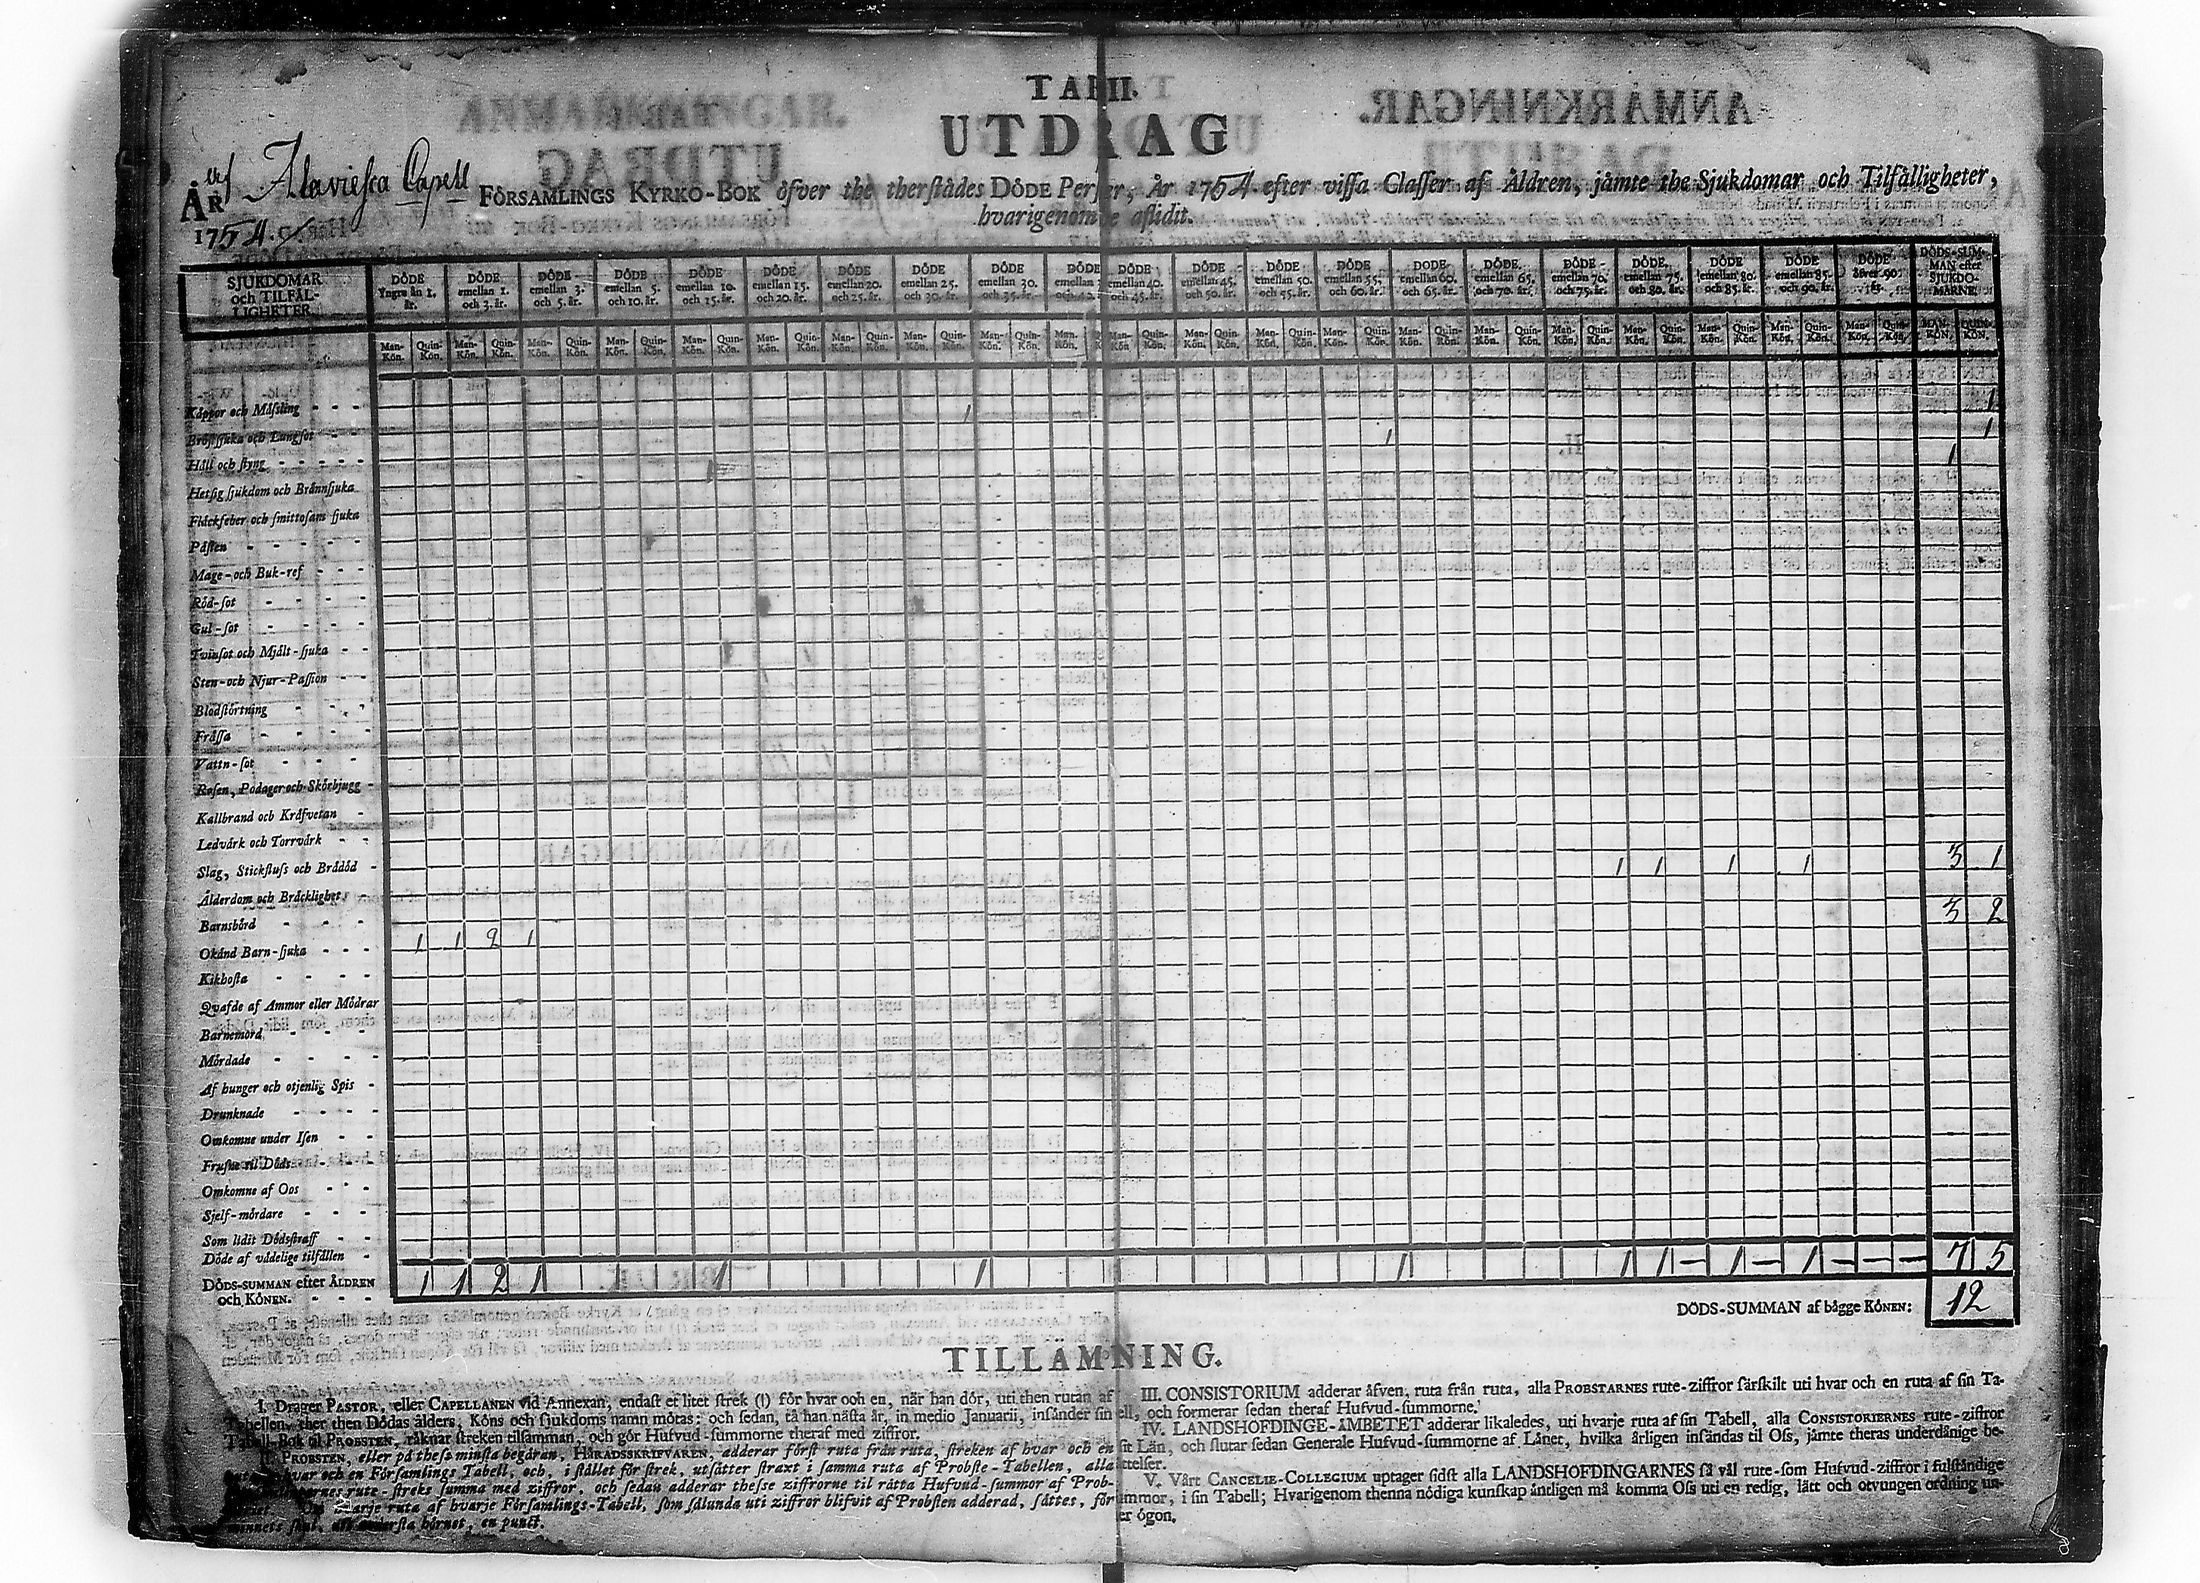 TAB II.
UTDRAG
Utaf Alavieska Capell FÖRSAMLINGS KYRKO-BOK öfver the therstädes DÖDE Personer, År 1754. efter vissa Classer af Åldren, jämte the Sjukdomar och Tilfälligheter,
ÅR
1754.
hvarigenom the aflidit.
SJUKDOMAR och TILFÄLLIGHETER.
DÖDE Yngre än 1. år.
DÖDE emellan 1. och 3. år.
DÖDE emellan 3. och 5. år.
DÖDE emellan 5. och 10. år.
DÖDE emellan 10. och 15. år.
DÖDE emellan 15. och 20. år.
DÖDE emellan 20. och 25. år.
DÖDE emellan 25. och 30. år.
DÖDE emellan 30.
DÖDE
DÖDE emellan 40. och 45. år.
DÖDE emellan 45. och 50. år.
DÖDE emellan 50. och 55. år.
DÖDE emellan 55. och 60. år.
DÖDE emellan 60. och 65. år.
DÖDE emellan 65. och 70. år.
DÖDE emellan 70. och 75. år.
DÖDE emellan 75. och 80. år.
DÖDE emellan 80. och 85. år.
DÖDE emellan 85. och 90. år.
DÖDE öfver 90. år.
DÖDS-SUMMAN efter SJUKDOMARNE.
Man-Kön. Quin-Kön. Man-Kön. Quin-Kön. Man-Kön. Quin-Kön. Man-Kön. Quin-Kön. Man-Kön. Quin-Kön. Man-Kön. Quin-Kön. Man-Kön. Quin-Kön. Man-Kön. Quin-Kön. Man-Kön. Quin-Kön. Man-Kön. Man-Kön. Quin-Kön. Man-Kön. Quin-Kön. Man-Kön. Quin-Kön. Man-Kön. Quin-Kön. Man-Kön. Quin-Kön. Man-Kön. Quin-Kön. Man-Kön. Quin-Kön. Man-Kön. Quin-Kön. Man-Kön. Quin-Kön. Man-Kön. Quin-Kön. Man-Kön. Quin-Kön. MAN-KÖN. QUIN-KÖN.
Koppor och Mässling - - - 1 1
Bröstsjuka och Lungsot - - 1 1
Håll och styng - - - - - 1 1
Hetsig sjukdom och Brännsjuka
Fläckfeber och smittosam sjuka
Pästen - - - - -
Mage-och Buk-ref - - -
Röd-sot - - - -
Gul-sot - - - -
Tvinsot och Mjält-sjuka - -
Sten-och Njur-Passion - -
Blodstörtning - - -
Frässa - - - -
Vattn-sot - - - -
Rosen, Podager och Skörbjugg -
Kallbrand och Kräfvetan -
Ledvärk och Torrvärk - -
Slag, Stickfluss och Brådöd - 1 1 1 1 3 1
Ålderdom och Bräcklighet
Barnsbörd - - - - 3 2
Okänd Barn-sjuka - - - 1 1 2 1
Kikhosta - - - -
Quafde af Ammor eller Mödrar
Barnemord - - -
Mördade - - - -
Af hunger och otjenlig Spis -
Drunknade - - - -
Omkomne under Isen - -
Frusne til Döds - - -
Omkomne af Oos - - -
Sjelf-mördare - - -
Som lidit Dödsstraff - -
Döde af vådelige tilfällen -
DÖDS-SUMMAN efter ÅLDREN och KÖNEN. - - - 1 1 2 1 1 1 1 1 1 — 1 — 1 — — — 7 5
DÖDS-SUMMAN af bägge KÖNEN: 12
TILLÄMNING.
I. Drager PASTOR, eller CAPELLANEN vid Annexan, endast et litet strek (|) för hvar och en, när han dör, uti then rutan af
Tabellen, ther then Dödas ålders, Köns och sjukdoms namn mötas: och sedan, tå han nästa år, in medio Januarii, insänder sin
Tabell-Bok til PROBSTEN, räknar streken tilsamman, och gör Hufvud-summorne theraf med ziffror.
II. PROBSTEN, eller på thess minsta begäran, HÄRADSSKRIFVAREN, adderar först ruta från ruta, streken af hvar och en
hvar och en Församlings Tabell, och, i stället för strek, utsätter straxt i samma ruta af Probste-Tabellen, alla
rute-streks summa med ziffror, och sedan adderar thesse ziffrorne til rätta Hufvud-summor af Prob-
ruta af hvarje Församlings-Tabell, som sålunda uti ziffror blifvit af Probsten adderad, sättes, för
minnets skul, en punct.
III. CONSISTORIUM adderar äfven, ruta från ruta, alla PROBSTARNES rute-ziffror särskilt uti hvar och en ruta af sin Ta-
ell, och formerar sedan theraf Hufvud-summorne.
IV. LANDSHÖFDINGE-ÄMBETET adderar likaledes, uti hvarje ruta af sin Tabell, alla CONSISTORIERNES rute-ziffror
sit Län, och slutar sedan Generale Hufvud-summorne af Länet, hvilka årligen insändas til Oss, jämte theras underdånige be-
rättelser.
V. Vårt CANCELIE-COLLEGIUM uptager sidst alla LANDSHÖFDINGARNES så väl rute-som Hufvud-ziffror i fulständige
summor, i sin Tabell; Hvarigenom thenna nödiga kunskap äntligen må komma Oss uti en redig, lätt och otvungen ordning un-
der ögon.